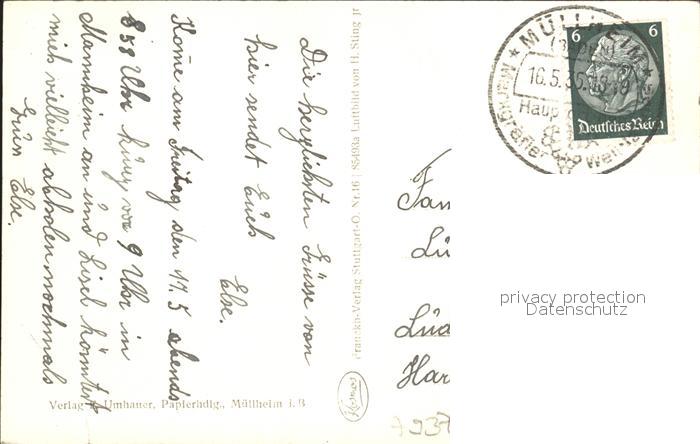 Die herzlichsten Grüsse von
hier sendet Euch
Else.
Kome am Freitag den 17.5 abends
8 58 Uhr kurz vor 9 Uhr in
Mannheim an und Lisel könntet
mich vielleicht abholen nochmals
Gruss Else.
Verlag Umhauer, Papierhdlg., Müllheim i. B
Franckh-Verlag Stuttgart-O. Nr. 16 | 85463a Luftbild von H. Sting jr
MÜLLHEIM
16.5.35
Haup
Markgräfler Wein
6 6
Deutsches Reich
Fam
Lu
Lud
Har
A 937
privacy protection
Datenschutz